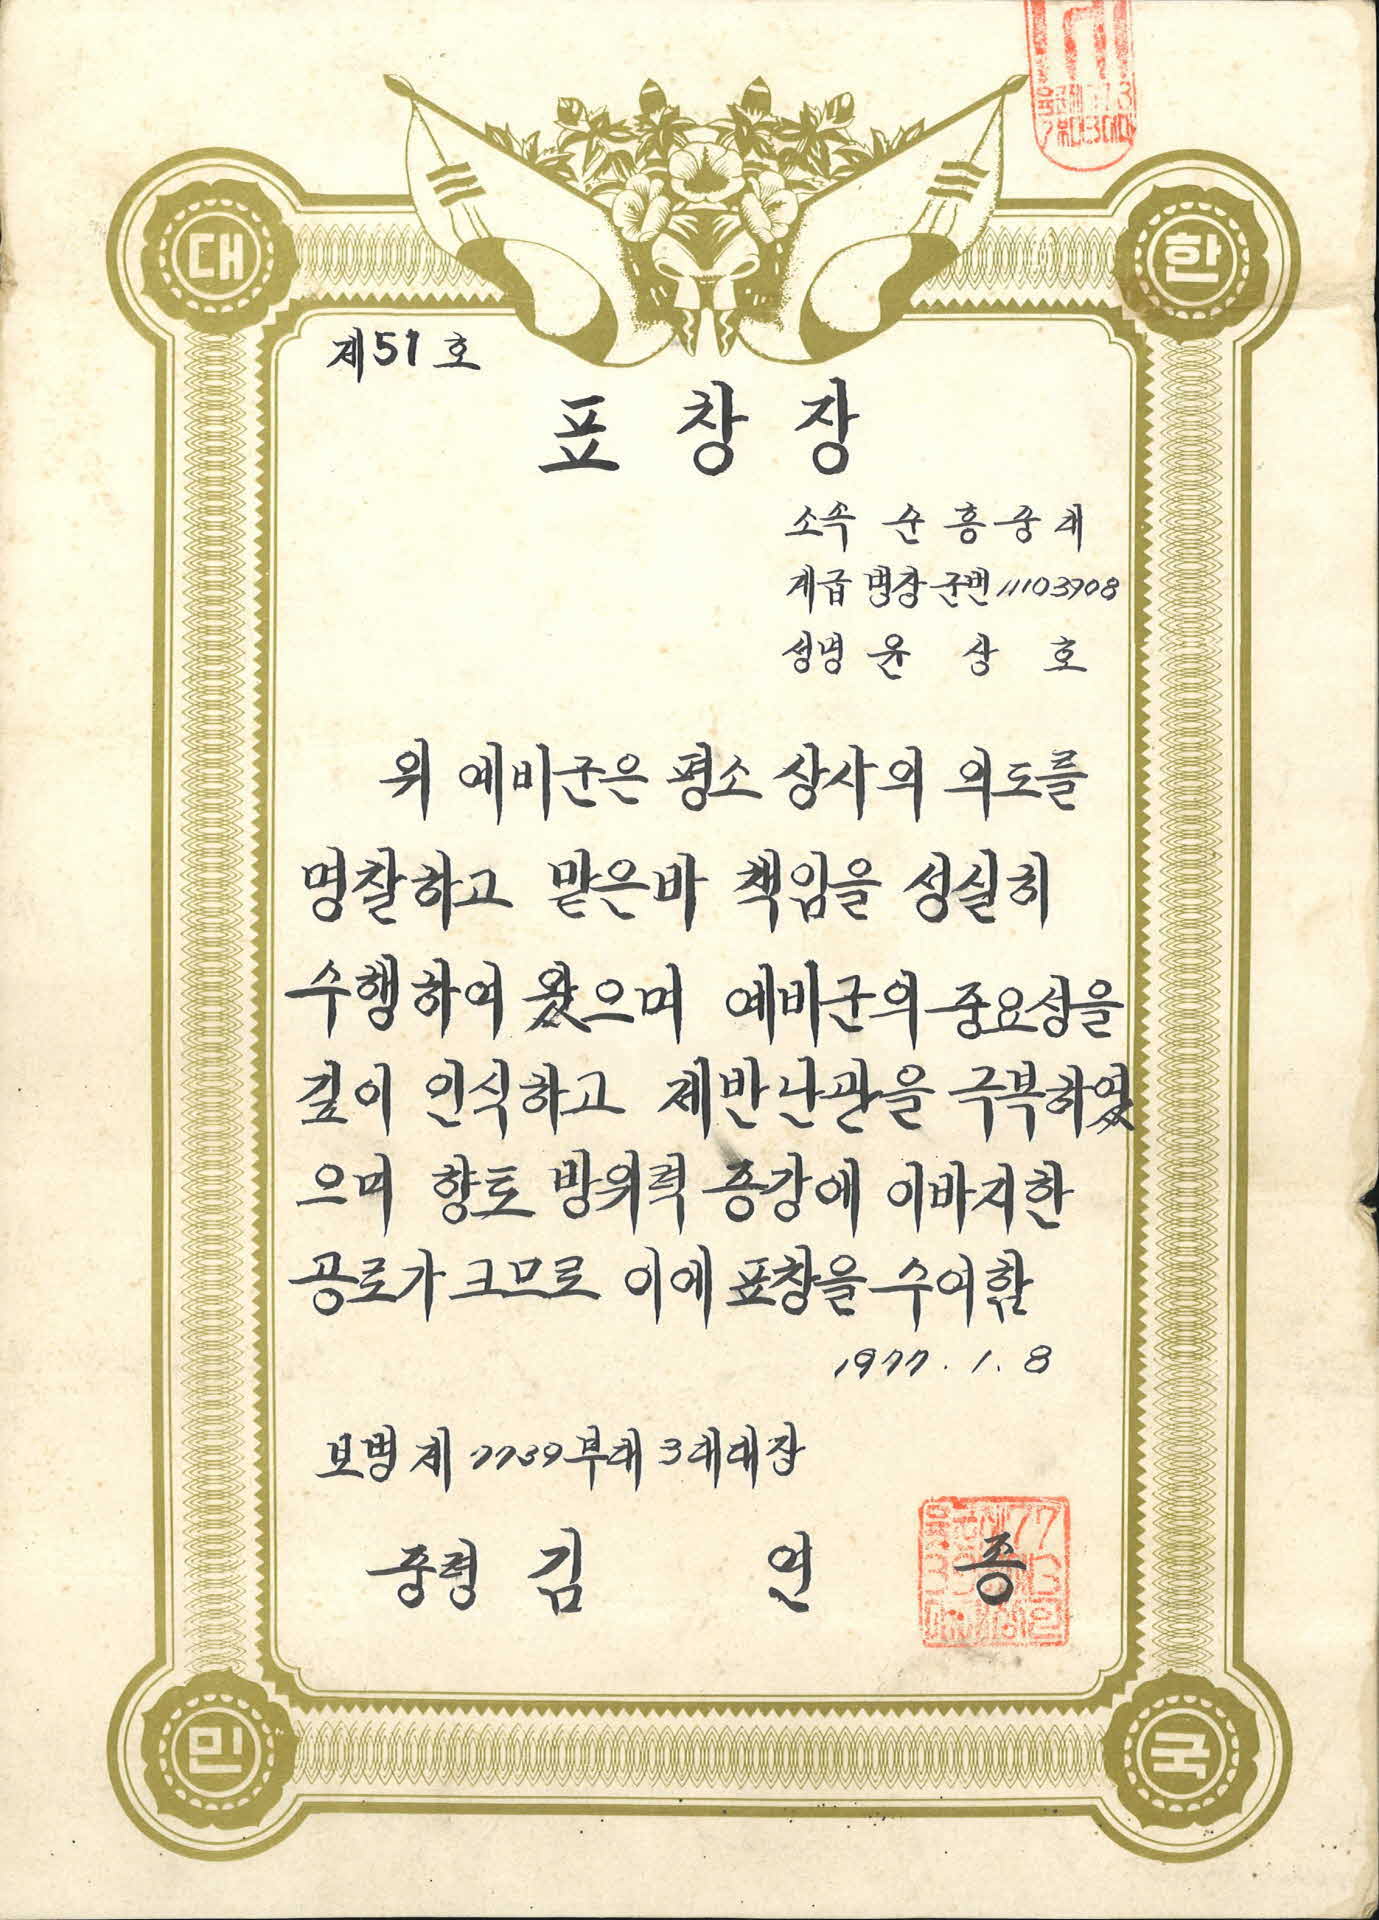 대 한
제51호
표 창 장
소속 순흥중대
계급 병장 군번 11103908
성명 윤 상 호
위 예비군은 평소 상사의 의도를
명찰하고 맡은바 책임을 성실히
수행하여 왔으며 예비군의 중요성을
깊이 인식하고 제반난관을 극복하였
으며 향토 방위력 증강에 이바지한
공로가 크므로 이에 표창을 수여함
1977. 1. 8
보병 제 7739부대 3대대장
중령 김 연 종
민 국